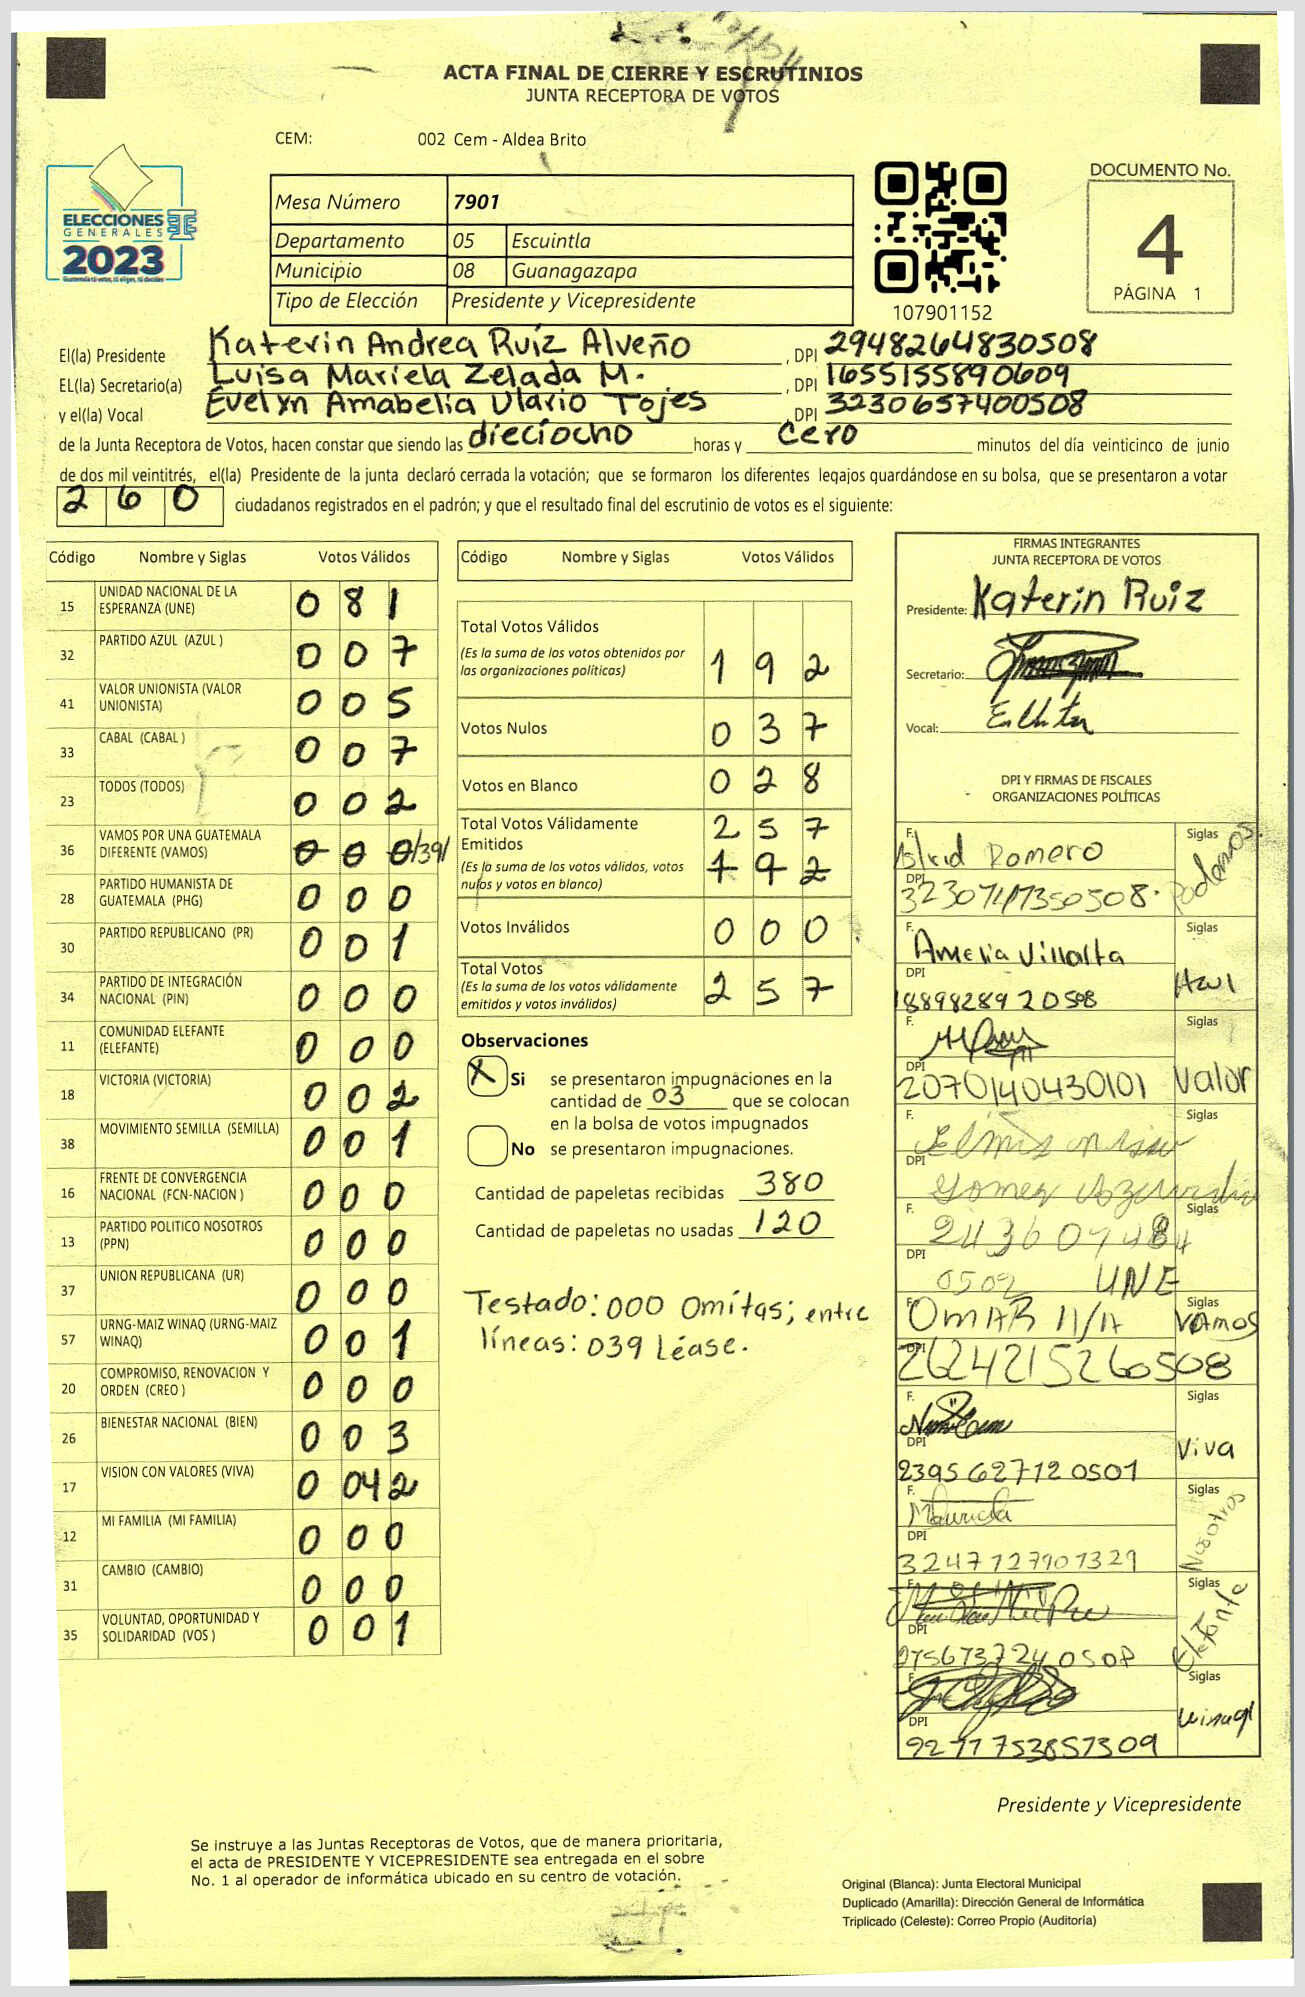 ACTA FINAL DE CIERRE Y ESCRUTINIOS
JUNTA RECEPTORA DE VOTOS
CEM: 002 Cem - Aldea Brito
ELECCIONES
GENERALES
2023
Mesa Número 7901
Departamento 05 Escuintla
Municipio 08 Guanagazapa
Tipo de Elección Presidente y Vicepresidente
107901152
DOCUMENTO No.
4
PÁGINA 1
El(la) Presidente Katerin Andrea Ruíz Alveño , DPI 2948264830508
EL(la) Secretario(a) Luisa Mariela Zelada M. , DPI 1655155890609
y el(la) Vocal Evelyn Amabelia Ulario Tojes , DPI 3230657400508
de la Junta Receptora de Votos, hacen constar que siendo las dieciocho horas y cero minutos del día veinticinco de junio
de dos mil veintitrés, el(la) Presidente de la junta declaró cerrada la votación; que se formaron los diferentes legajos guardándose en su bolsa, que se presentaron a votar
260 ciudadanos registrados en el padrón; y que el resultado final del escrutinio de votos es el siguiente:
Código Nombre y Siglas Votos Válidos
15 UNIDAD NACIONAL DE LA ESPERANZA (UNE) 0 8 1
32 PARTIDO AZUL (AZUL ) 0 0 7
41 VALOR UNIONISTA (VALOR UNIONISTA) 0 0 5
33 CABAL (CABAL ) 0 0 7
23 TODOS (TODOS) 0 0 2
36 VAMOS POR UNA GUATEMALA DIFERENTE (VAMOS) 0 0 0 /39/
28 PARTIDO HUMANISTA DE GUATEMALA (PHG) 0 0 0
30 PARTIDO REPUBLICANO (PR) 0 0 1
34 PARTIDO DE INTEGRACIÓN NACIONAL (PIN) 0 0 0
11 COMUNIDAD ELEFANTE (ELEFANTE) 0 0 0
18 VICTORIA (VICTORIA) 0 0 2
38 MOVIMIENTO SEMILLA (SEMILLA) 0 0 1
16 FRENTE DE CONVERGENCIA NACIONAL (FCN-NACION ) 0 0 0
13 PARTIDO POLITICO NOSOTROS (PPN) 0 0 0
37 UNION REPUBLICANA (UR) 0 0 0
57 URNG-MAIZ WINAQ (URNG-MAIZ WINAQ) 0 0 1
20 COMPROMISO, RENOVACION Y ORDEN (CREO ) 0 0 0
26 BIENESTAR NACIONAL (BIEN) 0 0 3
17 VISION CON VALORES (VIVA) 0 04 2
12 MI FAMILIA (MI FAMILIA) 0 0 0
31 CAMBIO (CAMBIO) 0 0 0
35 VOLUNTAD, OPORTUNIDAD Y SOLIDARIDAD (VOS ) 0 0 1
Código Nombre y Siglas Votos Válidos
Total Votos Válidos
(Es la suma de los votos obtenidos por
las organizaciones políticas) 1 9 2
Votos Nulos 0 3 7
Votos en Blanco 0 2 8
Total Votos Válidamente 2 5 7
Emitidos
(Es la suma de los votos válidos, votos
nulos y votos en blanco) 1 9 2
Votos Inválidos 0 0 0
Total Votos
(Es la suma de los votos válidamente
emitidos y votos inválidos) 2 5 7
Observaciones
X Si se presentaron impugnaciones en la
cantidad de 03 que se colocan
en la bolsa de votos impugnados
No se presentaron impugnaciones.
Cantidad de papeletas recibidas 380
Cantidad de papeletas no usadas 120
Testado: 000 Omitas; entre
líneas: 039 Léase.
FIRMAS INTEGRANTES
JUNTA RECEPTORA DE VOTOS
Presidente: Katerin Ruiz
Secretario:
Vocal:
DPI Y FIRMAS DE FISCALES
ORGANIZACIONES POLÍTICAS
F. Astrid Romero Siglas Podemos.
DPI
F. Amelia Villalta Siglas Azul
DPI 1889828920508
F. Siglas Valor
DPI 2070140430101
F. Siglas
DPI
F. Siglas
DPI 0502 UNE
F. OMAR Siglas VAMOS
DPI 2624215260508
F. Siglas Viva
DPI 2395627120501
F. Siglas Nosotros
DPI 3247127901329
F. Siglas Elefante
DPI
F. Siglas Winaq
DPI
Presidente y Vicepresidente
Se instruye a las Juntas Receptoras de Votos, que de manera prioritaria,
el acta de PRESIDENTE Y VICEPRESIDENTE sea entregada en el sobre
No. 1 al operador de informática ubicado en su centro de votación.
Original (Blanca): Junta Electoral Municipal
Duplicado (Amarilla): Dirección General de Informática
Triplicado (Celeste): Correo Propio (Auditoría)